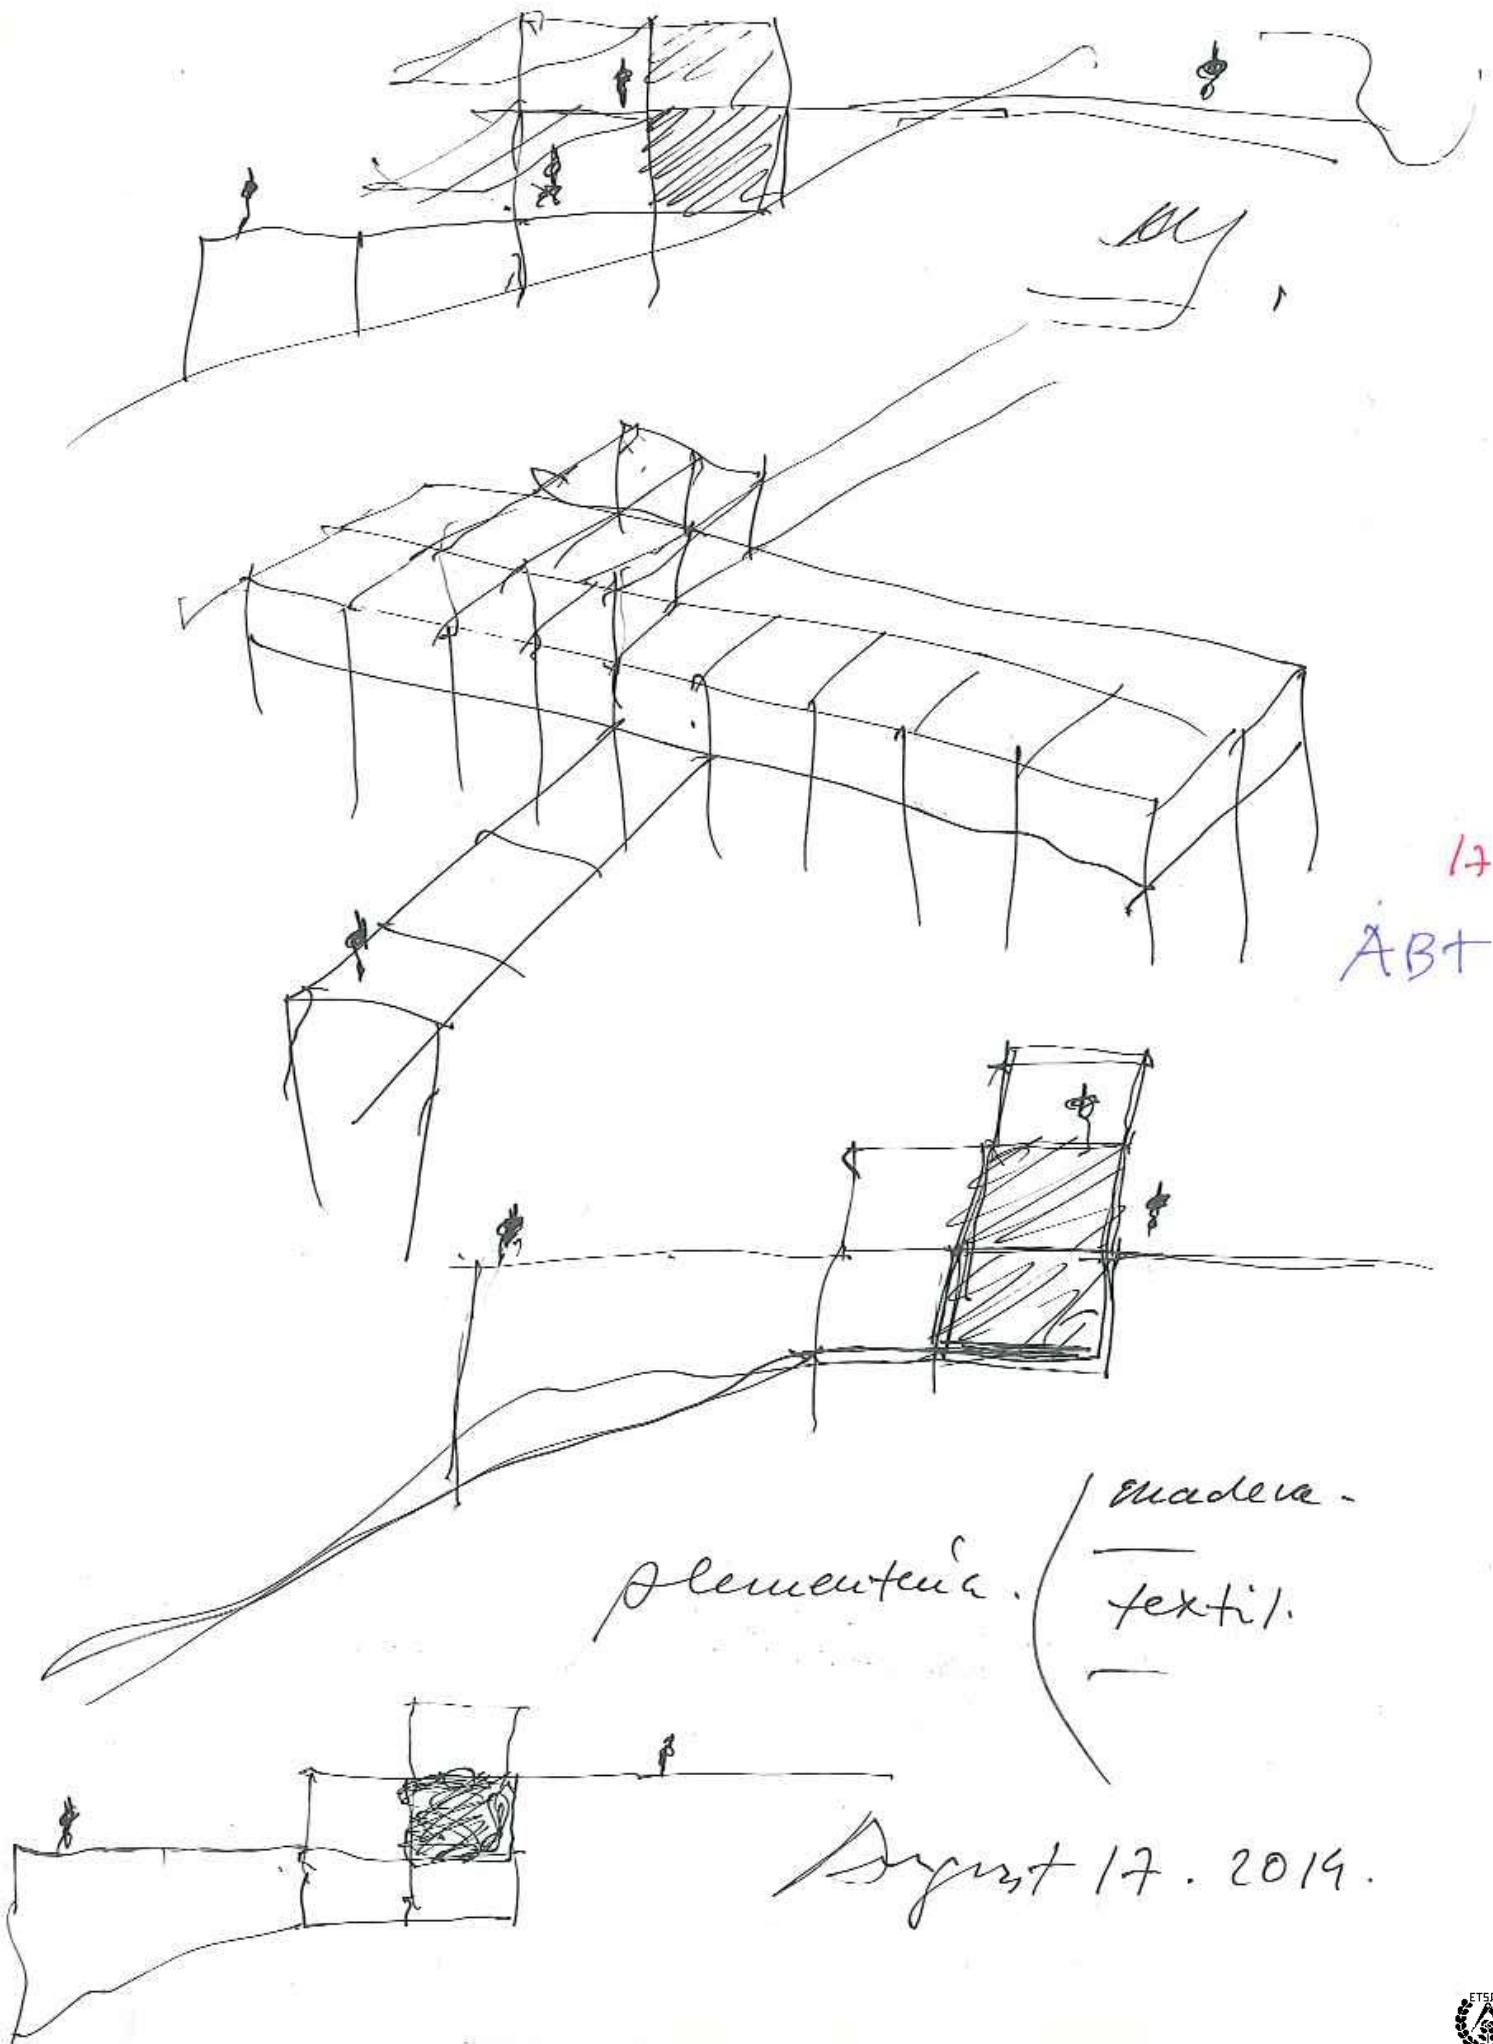 17
AB+
plementería.
madera.
textil.
August 17. 2019.
ETS